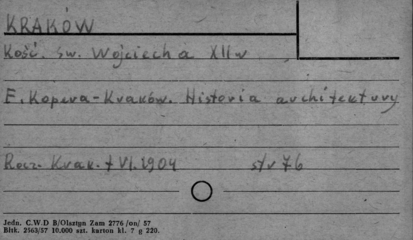 KRAKÓW
Kość. św. Wojciecha XII w
F. Kopera - Kraków. Historia architektury
Rocz. Krak. t VI. 1904 str 76
Jedn. C.W.D B/Olsztyn Zam 2776 /on/ 57
Blzk. 2563/57 10.000 szt. karton kl. 7 g 220.